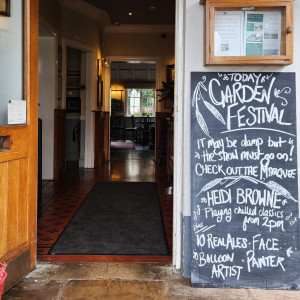 TODAY
GARDEN
FESTIVAL
IT MAY BE DAMP BUT
THE SHOW MUST GO ON!
CHECK OUT THE MARQUEE
HEIDI BROWNE
PLAYING CHILLED CLASSICS
from 2pm
10 REAL ALES · FACE
BALLOON PAINTER
ARTIST